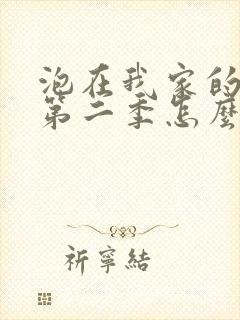 泡在我家的
第二季怎麼
祈寧結